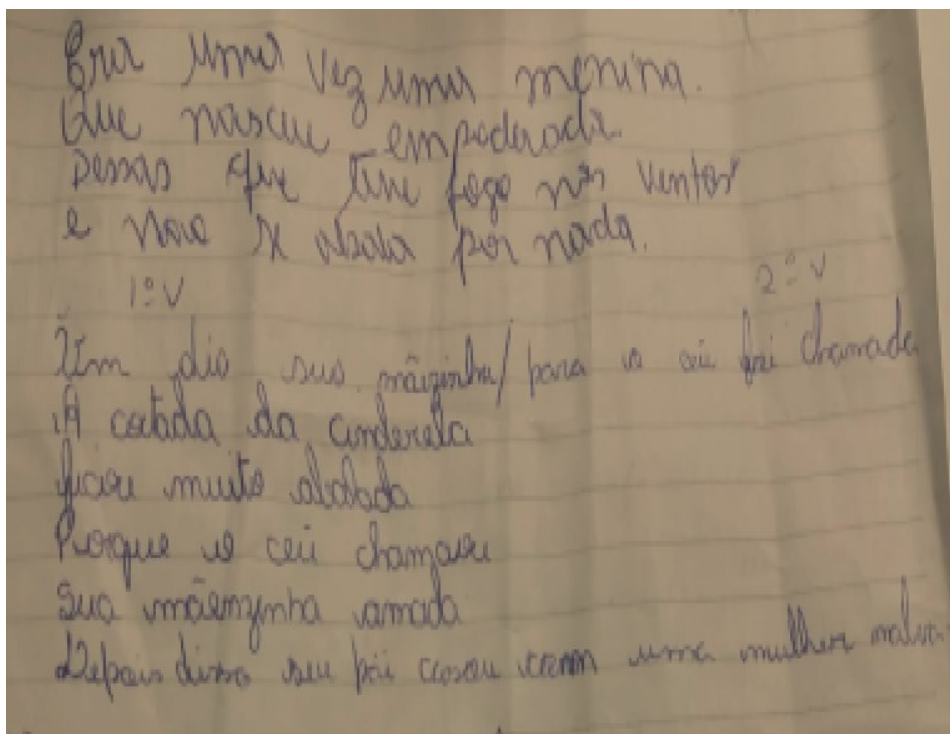 Era uma vez uma menina.
Que nasceu empoderada.
Dessas que tem fogo nas ventas
e não se abala por nada.
1º V 2º V
Um dia sua mãizinha/ para o céu foi chamada
A coitada da cinderela
ficou muito abalada
Porque o céu chamou
Sua mãenzinha amada
Depois disso seu pai casou com uma mulher malva